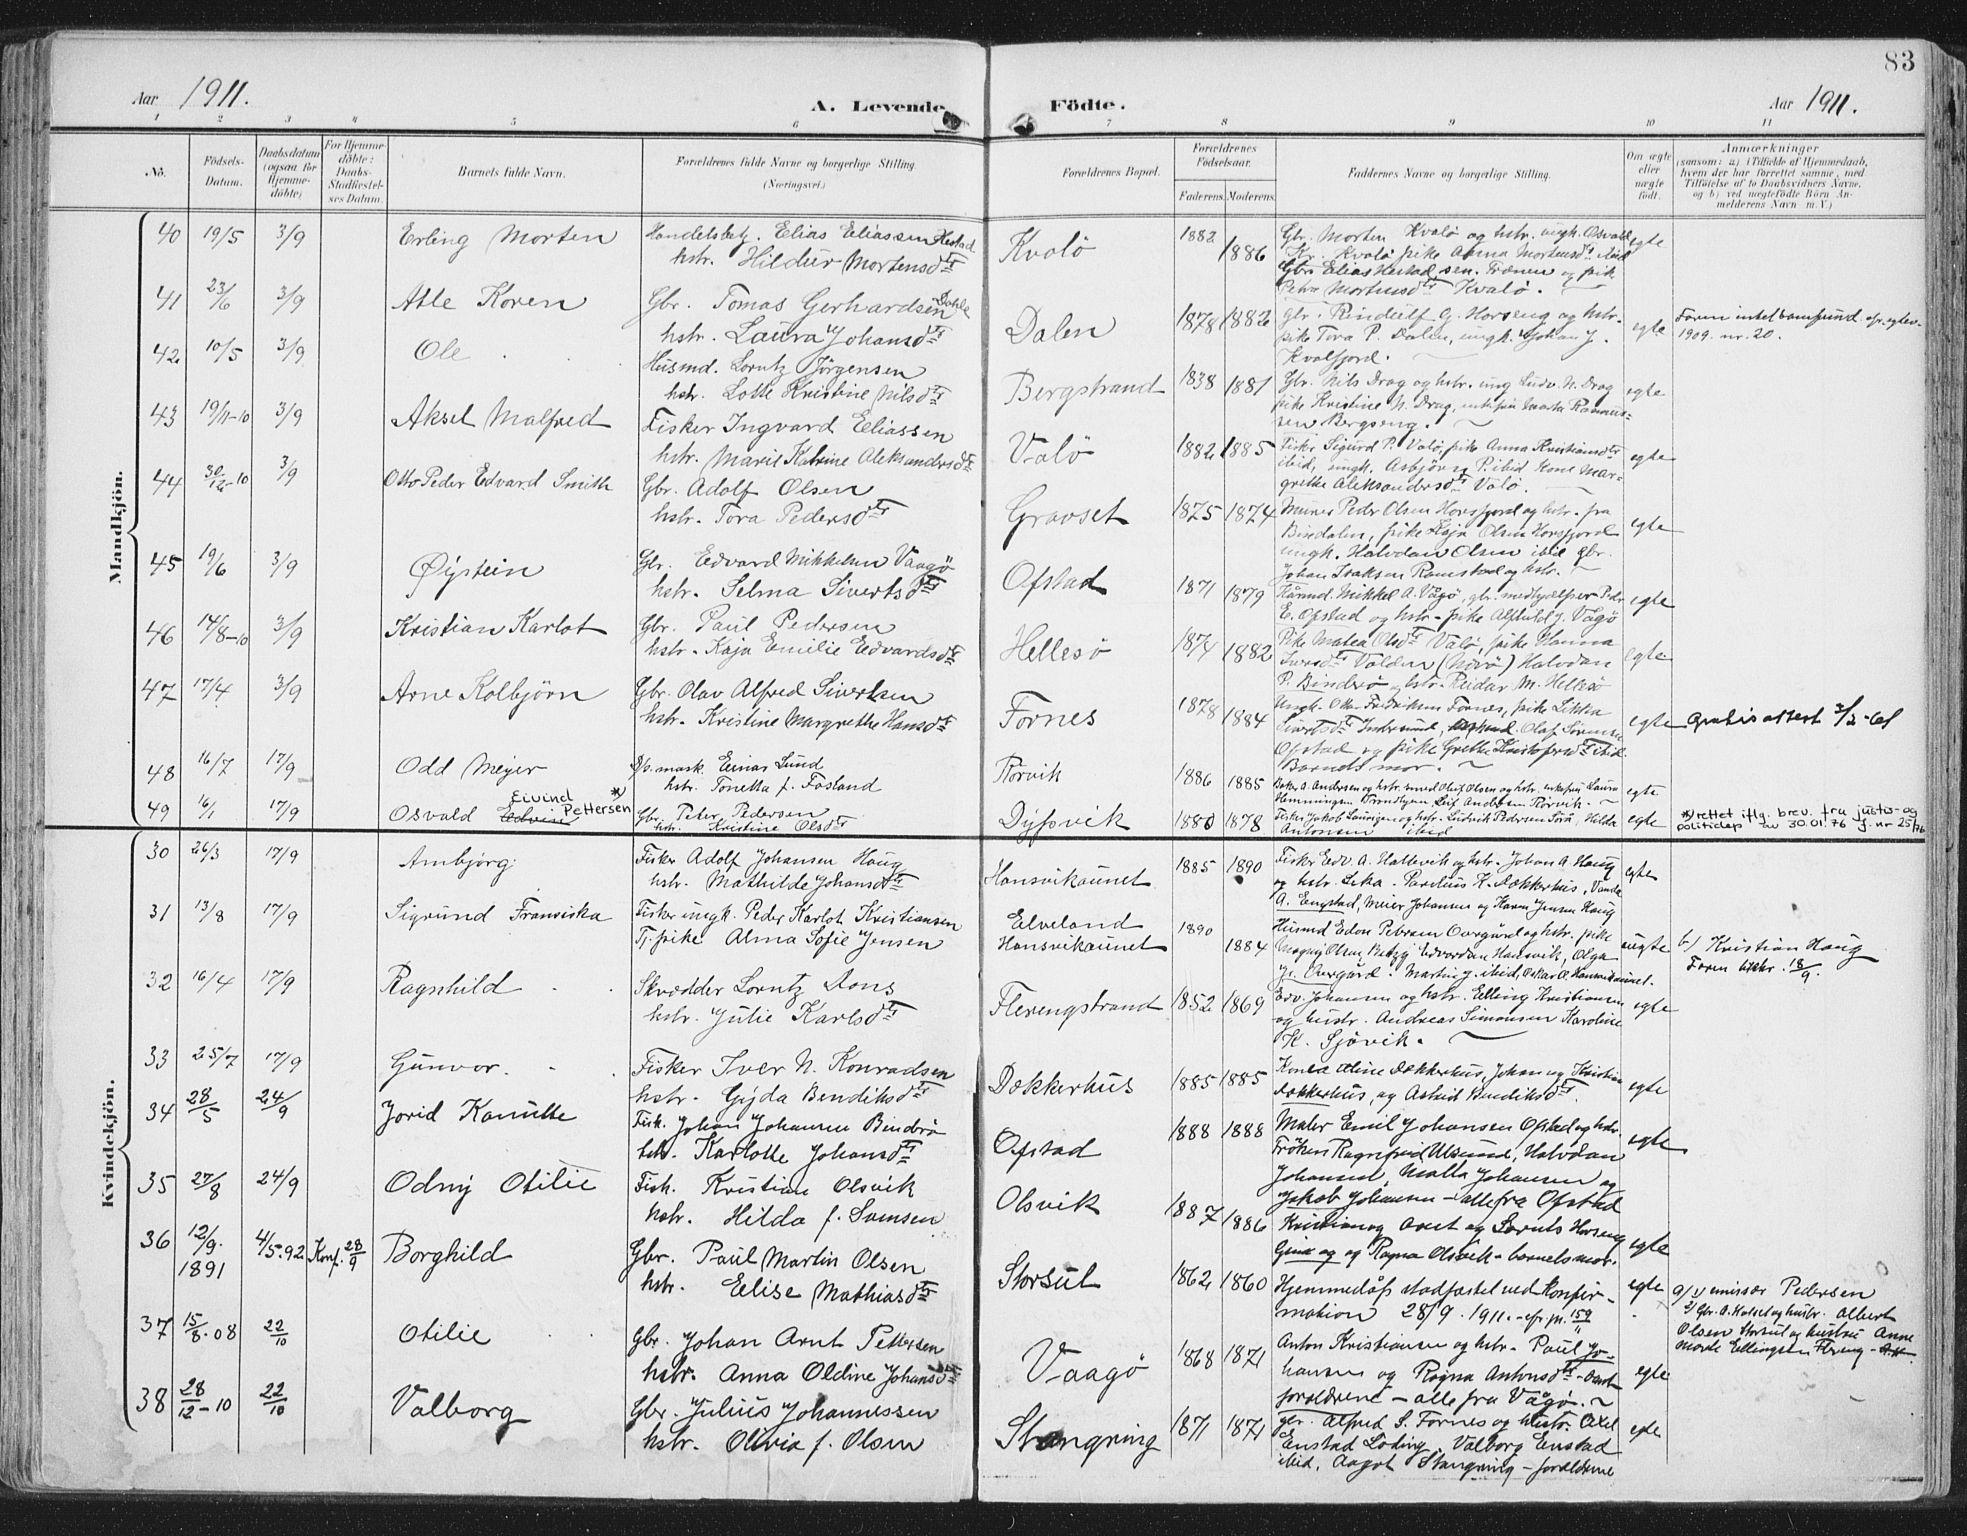 83
Aar 1911.
A. Levende Födte.
Aar 1911.
1 2 3 4 5 6 7 8 9 10 11
No.
Födsels-Datum.
Daabsdatum (ogsaa for Hjemme-döbte)
For Hjemme-döbte: Daabs-Stadfæstelses Datum.
Barnets fulde Navn.
Forældrenes fulde Navne og borgerlige Stilling. (Næringsvei.)
Forældrenes Bopæl.
Forældrenes Födselsaar.
Faderens. Moderens.
Faddernes Navne og borgerlige Stilling.
Om ægte eller uægte födt.
Anmærkninger
(saasom: a) i Tilfælde af Hjemmedaab, hvem der har forrettet samme, med Tilföielse af to Daabsvidners Navne, og b) ved uægtefödte Börn Anmelderens Navn m. V.)
Mandkjön.
40 19/5 3/9 Erling Morten
Handelsbetj. Elias Eliassen Hestad
hstr. Hildur Mortensdtr
Kvalö 1882 1886
Gbr. Morten Kvalö og hstr. ungk. Osvald
Kr. Kvalö pike Anna Mortensdtr ibid
Gbr. Elias Hestad sen. Trænen og pik
Petra Mortensdtr Kvalö.
egte
41 23/6 3/9 Atle Koren
Gbr. Tomas Gerhardsen Dahle
hstr. Laura Johansdtr
Dalen 1878 1882
gbr. Rindulf G. Horseng og hstr.
pike Tora P. Dalen, ungk. Johan J.
Kvalfjord.
egte
1909. nr. 20.
42 10/5 3/9 Ole
Husmd. Lorntz Jörgensen
hstr. Lotte Kristine Nilsdtr
Bergstrand 1838 1881
Gbr. Nils Drag og hstr. ung Ludv. N. Drag
pike Kristine N. Drag, enkefru Marta Rasmus-
sen Bergseng.
egte
43 19/11-10 3/9 Aksel Malfred
Fisker Ingvard Eliassen
hstr. Marie Katrine Aleksandersdtr
Valö 1882 1885
Fisker Sigurd P. Valö, pike Anna Kristiansdtr
ibid, ungk. Asbjörn P. ibid Kone Mar-
grethe Aleksandersdtr Valö.
egte
44 30/12-10 3/9 Otto Peder Edvard Smith
Gbr. Adolf Olsen
hstr. Tora Pedersdtr
Gravset 1875 1874
Murer Peder Olsen Horsfjord og hstr. fra
Bindalen, pike Kaja Olsen Horsfjord
ungk. Halvdan Olsen ibid gbr.
Johan Isaksen Ramstad og hstr.
egte
45 19/6 3/9 Øystein
Gbr. Edvard Mikkelsen Vaagö
hstr. Selma Sivertsdtr
Ofstad 1871 1879
Kårmd. Mikkel A. Vågö, gbr. medhjælper Peder
E. Ofstad og hstr. pike Alfhild J. Vågö
egte
46 14/8-10 3/9 Kristian Karlot
Gbr. Paul Pedersen
hstr. Kaja Emilie Edvardsdtr
Hellesö 1874 1882
Pike Matea Olsdtr Valö, pike Hanna
Iversdtr Valden Halvdan
P. Binderö og hstr. Reidar M. Hellesö
egte
47 17/4 3/9 Arne Kolbjörn
Gbr. Olav Alfred Sivertsen
hstr. Kristine Margrethe Hansdtr
Fornes 1878 1884
Ungk. Otto Fredriksen Fornes, pike
Sivertsdtr Olaf Sörensen
Ofstad og pike Grethe Kristoffersdtr ibid
Barnets mor.
egte
Gratis attest 3/2-61
48 16/7 17/9 Odd Meyer
Dp. mask. Eenas Lund
hstr. Tonetta f. Fosland
Rörvik 1886 1885
Baker A. Andersen og hstr. Olaf Olsen og hstr. enkefru Laura
Hemmingsen Trondhjem Leif Andersen Rörvik.
egte
49 16/1 17/9 Osvald Edvin Eivind Pettersen *)
Gbr. Peter Pedersen
hstr. Kristine Olsdtr
Dypvik 1880 1878
Fisker Jakob Lauritzen og hstr. Ludvik Pedersen Torö, Hilda
Antonsen ibid
egte
*) rettet iflg. brev. fra justis-og
politidep av 30.01.76 J. nr 25/76
Kvindekjön.
30 26/3 17/9 Ambjörg
Fisker Adolf Johansen Haug
hstr. Mathilde Johansdtr
Hansvikaunet 1885 1890
Fisker Edv. A. Hallevik og hstr. Johan A. Haug
og hstr. Leka. Parelius K. Dækkerhus, Vanda
A. Engstad, Meier Johansen og Karen Jensen Haug
egte
31 13/8 17/9 Sigrund Fransiska
Fisker ungk. Peder Karlot Kristiansen
Tj. pike Alma Sofie Jensen
Elveland
Hansvikaunet 1890 1884
Husmd Edon Petersen Ovrgård og hstr. pike
Magna Olsen, Betzy Edvardsen Hansvik, Olga
Jr. Ovrgård. Martin J. ibid, Oskar A. Hansvikaunet.
uegte
b) Kristian Haug
Foren bekr. 18/9.
32 16/4 17/9 Ragnhild
Skrædder Lorntz Aans
hstr. Julie Karlsdtr
Flerengstrand 1852 1869
Edv. Johansen og hstr. Elling Kristiansen
og hustr. Andreas Simonsen Karoline
K. Sjövik.
egte
33 25/7 17/9 Gunvor
Fisker Iver N. Konradsen
hstr. Gyda Bendiksdtr
Dækkerhus 1885 1885
Konea Aline Dækkerhus, Johan og Kristian
Dækkerhus, og Astrid Bendiksdtr.
egte
34 28/5 24/9 Jorid Kanutte
Fisk. Johan Johansen Binderö
hstr. Karlotte Johansdtr
Ofstad 1888 1888
Maler Emil Johansen Ofstad og hstr.
Fröken Ragnfrid Ulsund, Halvdan
Johansen, Malla Johansen og
Jakob Johansen - alle fra Ofstad
egte
35 27/8 24/9 Odny Otilie
Fisk. Kristian Olsvik
hstr. Hilda f. Svensen
Olsvik 1887 1886
Kristian og Arnt og Lornts Horseng
Gina og og Ragna Olsvik - barnets mor.
egte
36 12/9. 1891 4/5.92 Konf. 28/9 Borghild
Gbr. Paul Martin Olsen
hstr. Elise Mathiasdtr
Storsul 1862 1860
Hjemmedåp stadfæstet ved Konfir-
mation 28/9. 1911. - cfr. pr. 159/11
egte
a/ 1) emissær Pedersen
2) Gbr. A. Kalset og hustr. Albert
Olsen Storsul og hustru Anne
Marte Ellingsen Flereng
37 15/8.08 22/10 Otilie
Gbr. Johan Arnt Pettersen
hstr. Anna Oldine Johansdtr
Vaagö 1868 1871
Anton Kristiansen og hstr. Paul Jo-
hansen og Ragna Antonsdtr - samt
forældrene - alle fra Vågö.
egte
38 28/12-10 22/10 Valborg
Gbr. Julius Johannessen
hstr. Olivia f. Olsen
Stangring 1871 1871
gbr. Alfred S. Fornes og hustr. Axel
Enstad Löding, Valborg Enstad
ibid, Aagot Stangring - forældrene
egte